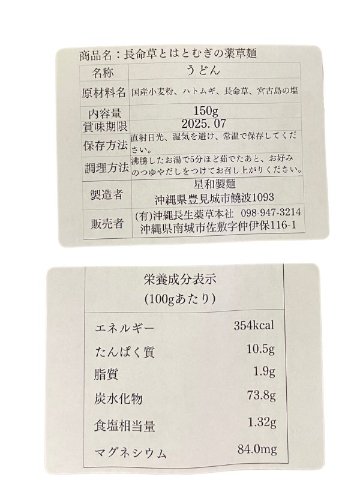 商品名：長命草とはとむぎの薬草麺
名称 うどん
原材料名 国産小麦粉、ハトムギ、長命草、宮古島の塩
内容量 150g
賞味期限 2025. 07
保存方法 直射日光、湿気を避け、常温で保存してください。
調理方法 沸騰したお湯で5分ほど茹でたあと、お好みのつゆやだしをつけてお召し上がりください。
製造者 星和製麺
沖縄県豊見城市饒波1093
販売者 (有)沖縄長生薬草本社 098-947-3214
沖縄県南城市佐敷字仲伊保116-1
栄養成分表示
(100gあたり)
エネルギー 354kcal
たんぱく質 10.5g
脂質 1.9g
炭水化物 73.8g
食塩相当量 1.32g
マグネシウム 84.0mg